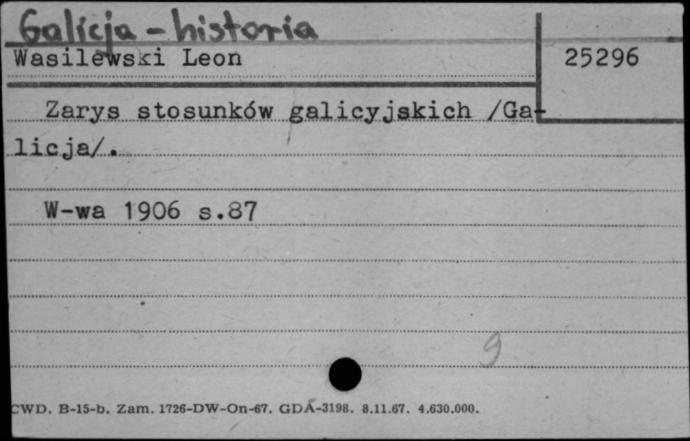 Galicja - historia
Wasilewski Leon
25296
Zarys stosunków galicyjskich /Ga-
licja/.
W-wa 1906 s.87
9
CWD. B-15-b. Zam. 1726-DW-On-67. GDA-3198. 8.11.67. 4.630.000.